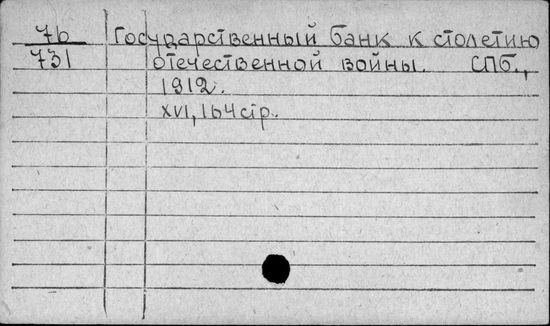 7б Государственный банк к столетию
731 отечественной войны. СПб.,
1912.
XVI, 164 стр.